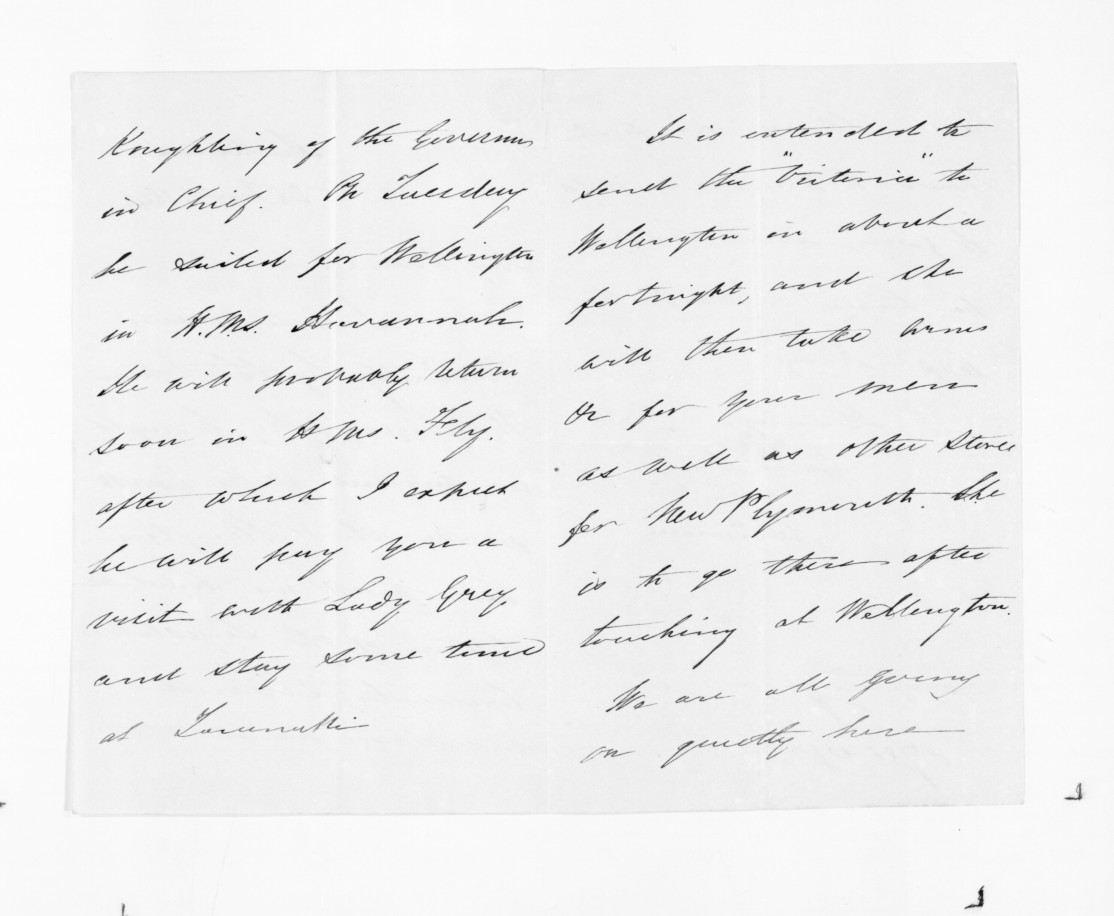 Knighting of the Governor
in Chief. On Tuesday
he sailed for Wellington
in H.M.S. Havannah.
He will probably return
soon in H Ms. Fly.
after which I expect
he will pay you a
visit with Lady Grey
and stay some time
at Taranaki
It is intended to
send the "Victoria" to
Wellington in about a
fortnight, and she
will then take arms
&c for your men
as well as other stores
for New Plymouth. She
is to go there after
touching at Wellington.
We are all going
on quietly here